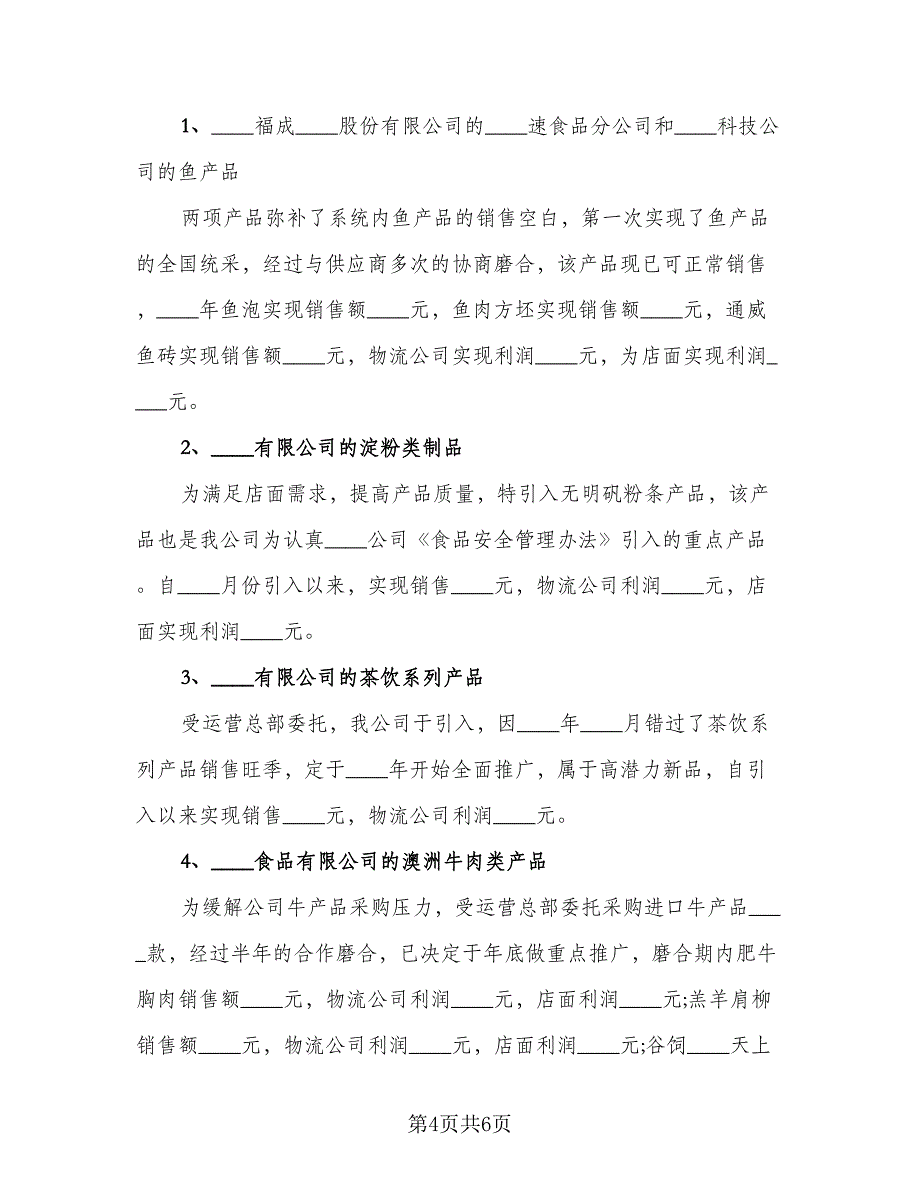 1、____福成____股份有限公司的____速食品分公司和____科技公
司的鱼产品
两项产品弥补了系统内鱼产品的销售空白，第一次实现了鱼产品
的全国统采，经过与供应商多次的协商磨合，该产品现已可正常销售
，____年鱼泡实现销售额____元，鱼肉方坯实现销售额____元，通威
鱼砖实现销售额____元，物流公司实现利润____元，为店面实现利润_
___元。
2、____有限公司的淀粉类制品
为满足店面需求，提高产品质量，特引入无明矾粉条产品，该产
品也是我公司为认真____公司《食品安全管理办法》引入的重点产品
。自____月份引入以来，实现销售____元，物流公司利润____元，店
面实现利润____元。
3、____有限公司的茶饮系列产品
受运营总部委托，我公司于引入，因____年____月错过了茶饮系
列产品销售旺季，定于____年开始全面推广，属于高潜力新品，自引
入以来实现销售____元，物流公司利润____元。
4、____食品有限公司的澳洲牛肉类产品
为缓解公司牛产品采购压力，受运营总部委托采购进口牛产品___
_款，经过半年的合作磨合，已决定于年底做重点推广，磨合期内肥牛
胸肉销售额____元，物流公司利润____元，店面利润____元;羔羊肩柳
销售额____元，物流公司利润____元，店面利润____元;谷饲____天上
第4页共6页